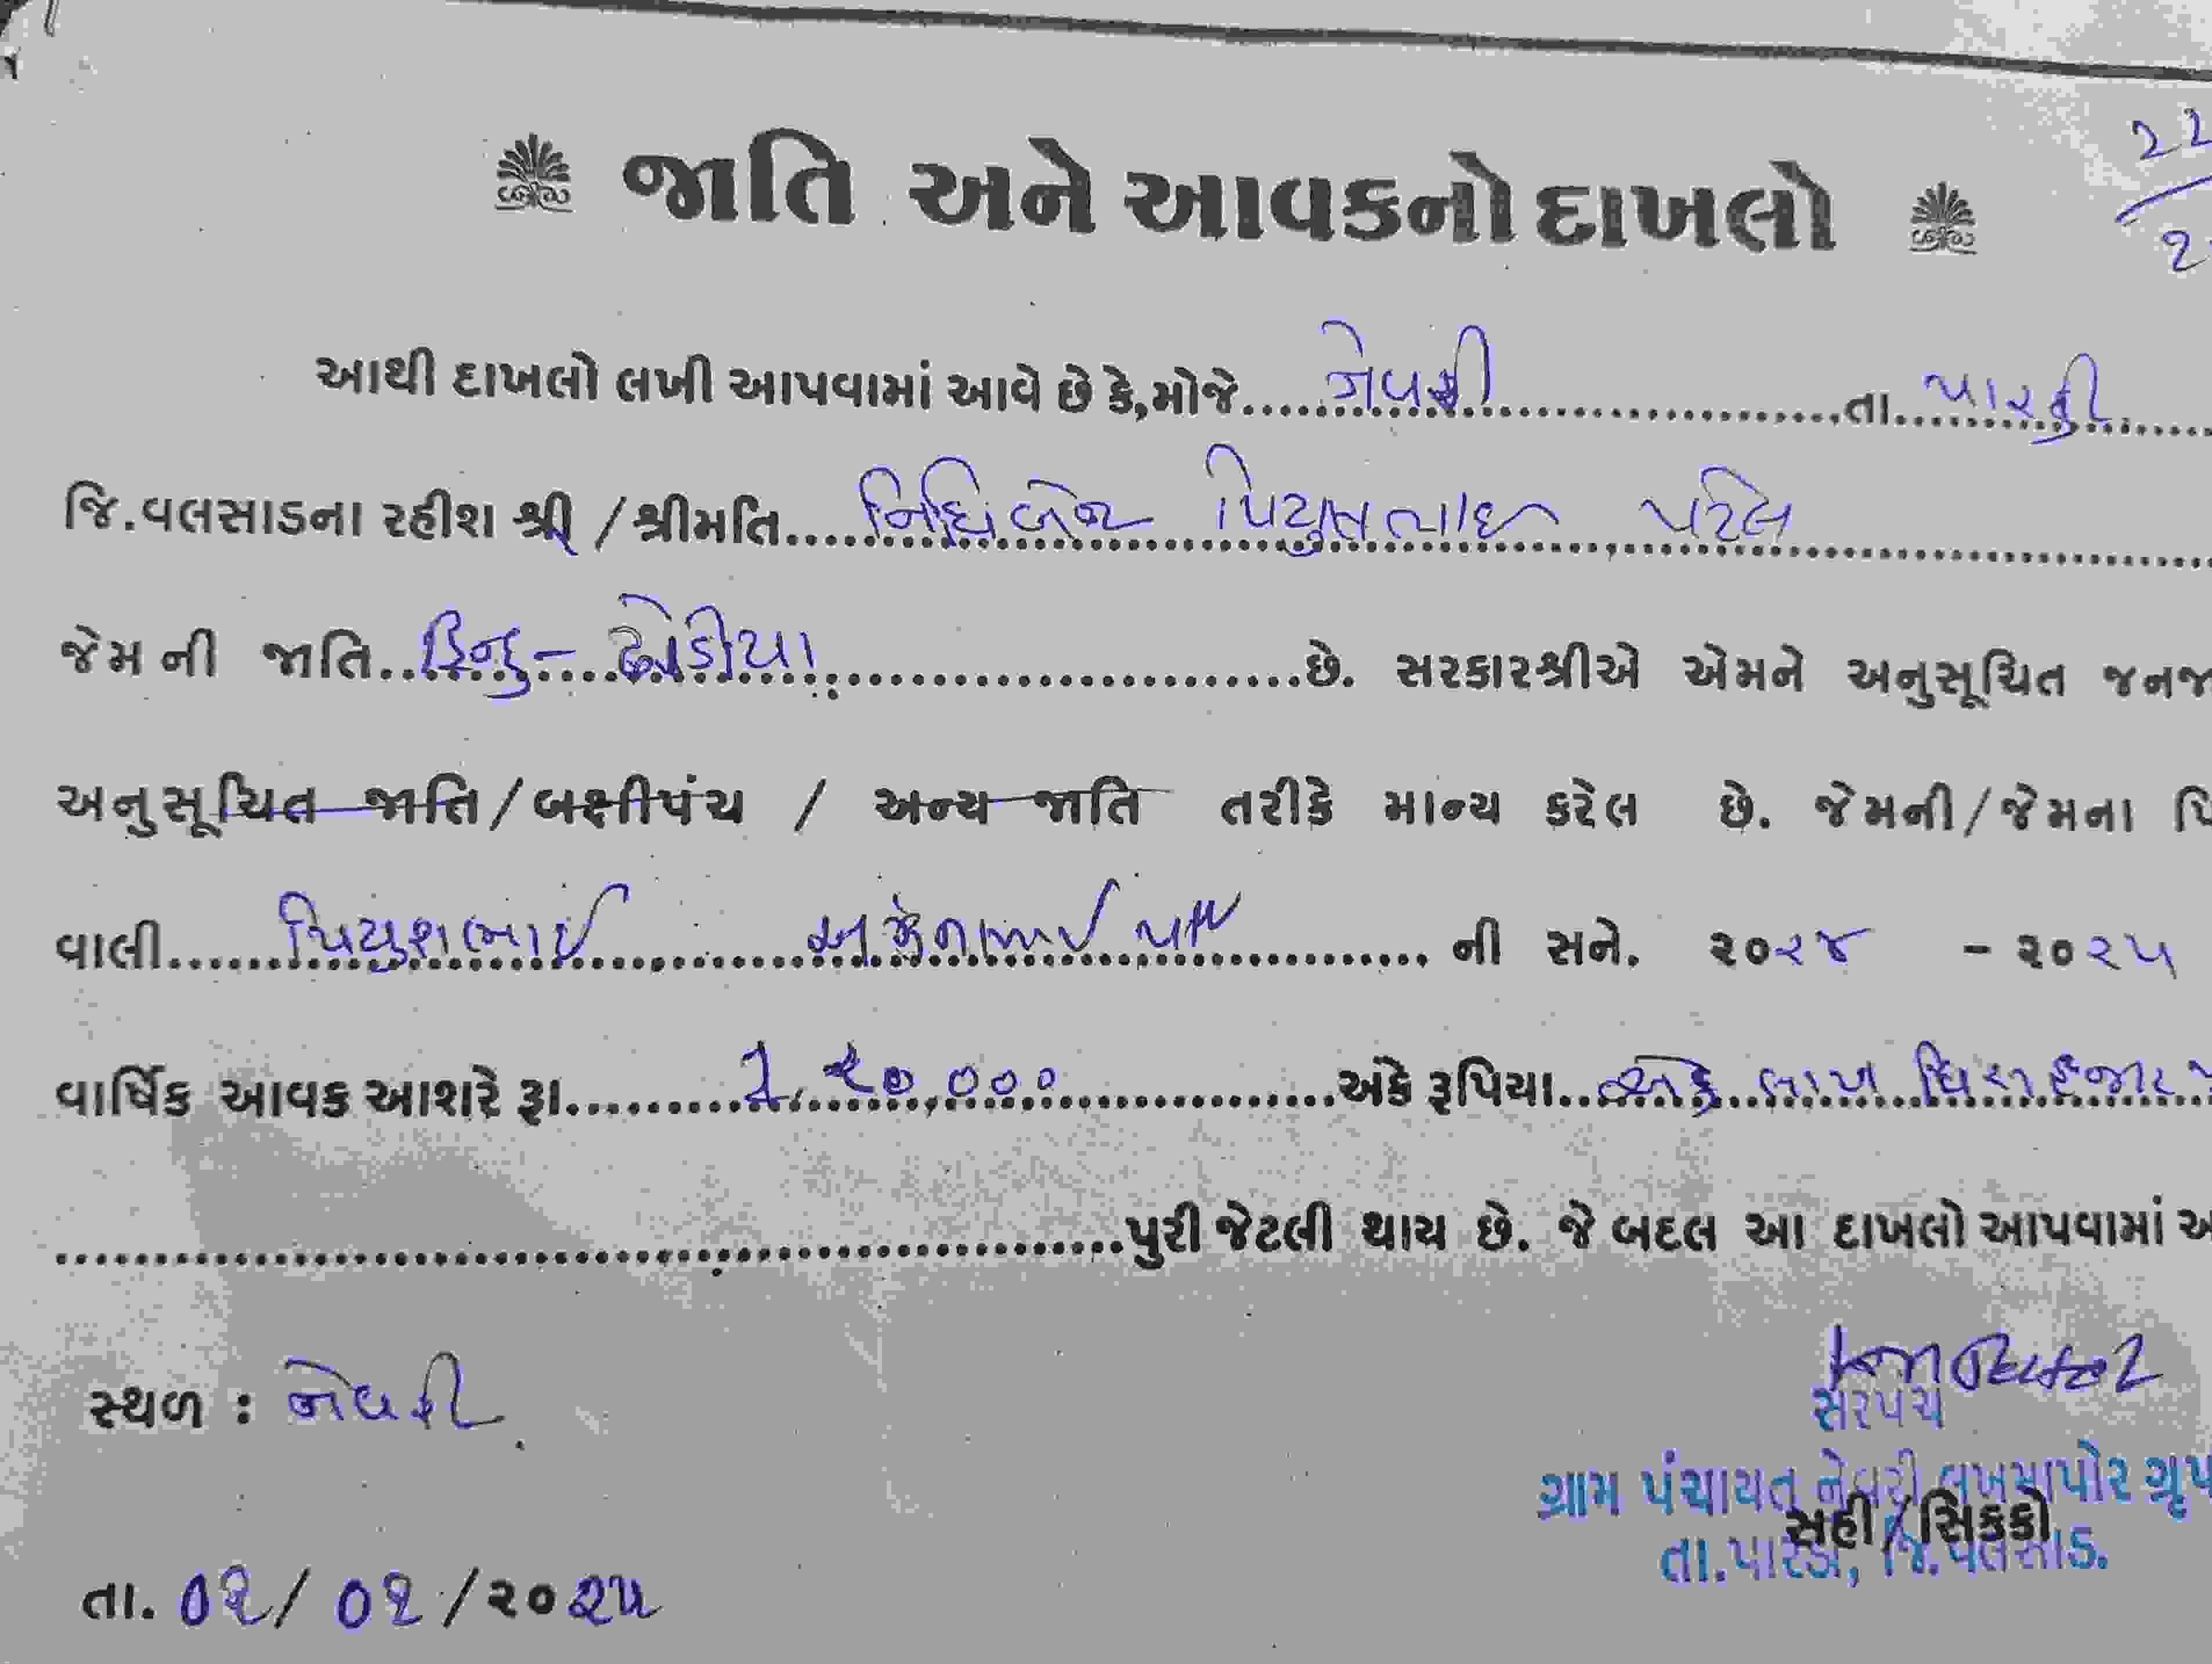 22
2
જાતિ અને આવકનો દાખલો
આથી દાખલો લખી આપવામાં આવે છે કે, મોજે નેવરી તા. પારડી
જિ.વલસાડના રહીશ શ્રી / શ્રીમતિ નિધિબેન પિયુષભાઇ પટેલ
જેમની જાતિ હિન્દુ - ઢોડીયા છે. સરકારશ્રીએ એમને અનુસૂચિત
અનુસૂચિત જાતિ / બક્ષીપંચ / અન્ય જાતિ તરીકે માન્ય કરેલ છે. જેમની / જેમના
વાલી પિયુશભાઈ ની સને. ૨૦૨૪ - ૨૦૨૫
વાર્ષિક આવક આશરે રૂા. 1,૨૦,૦૦૦ અંકે રૂપિયા એક લાખ વિસ હજાર
પુરી જેટલી થાય છે. જે બદલ આ દાખલો આપવામાં
સ્થળ : નેવરી
સરપંચ
ગ્રામ પંચાયત નેવરી લખમાપોર ગ્રૃપ
સહી / સિકકો
તા.પારડી, જિ.વલસાડ.
તા. ૦૧ / ૦૨ / ૨૦૨૫